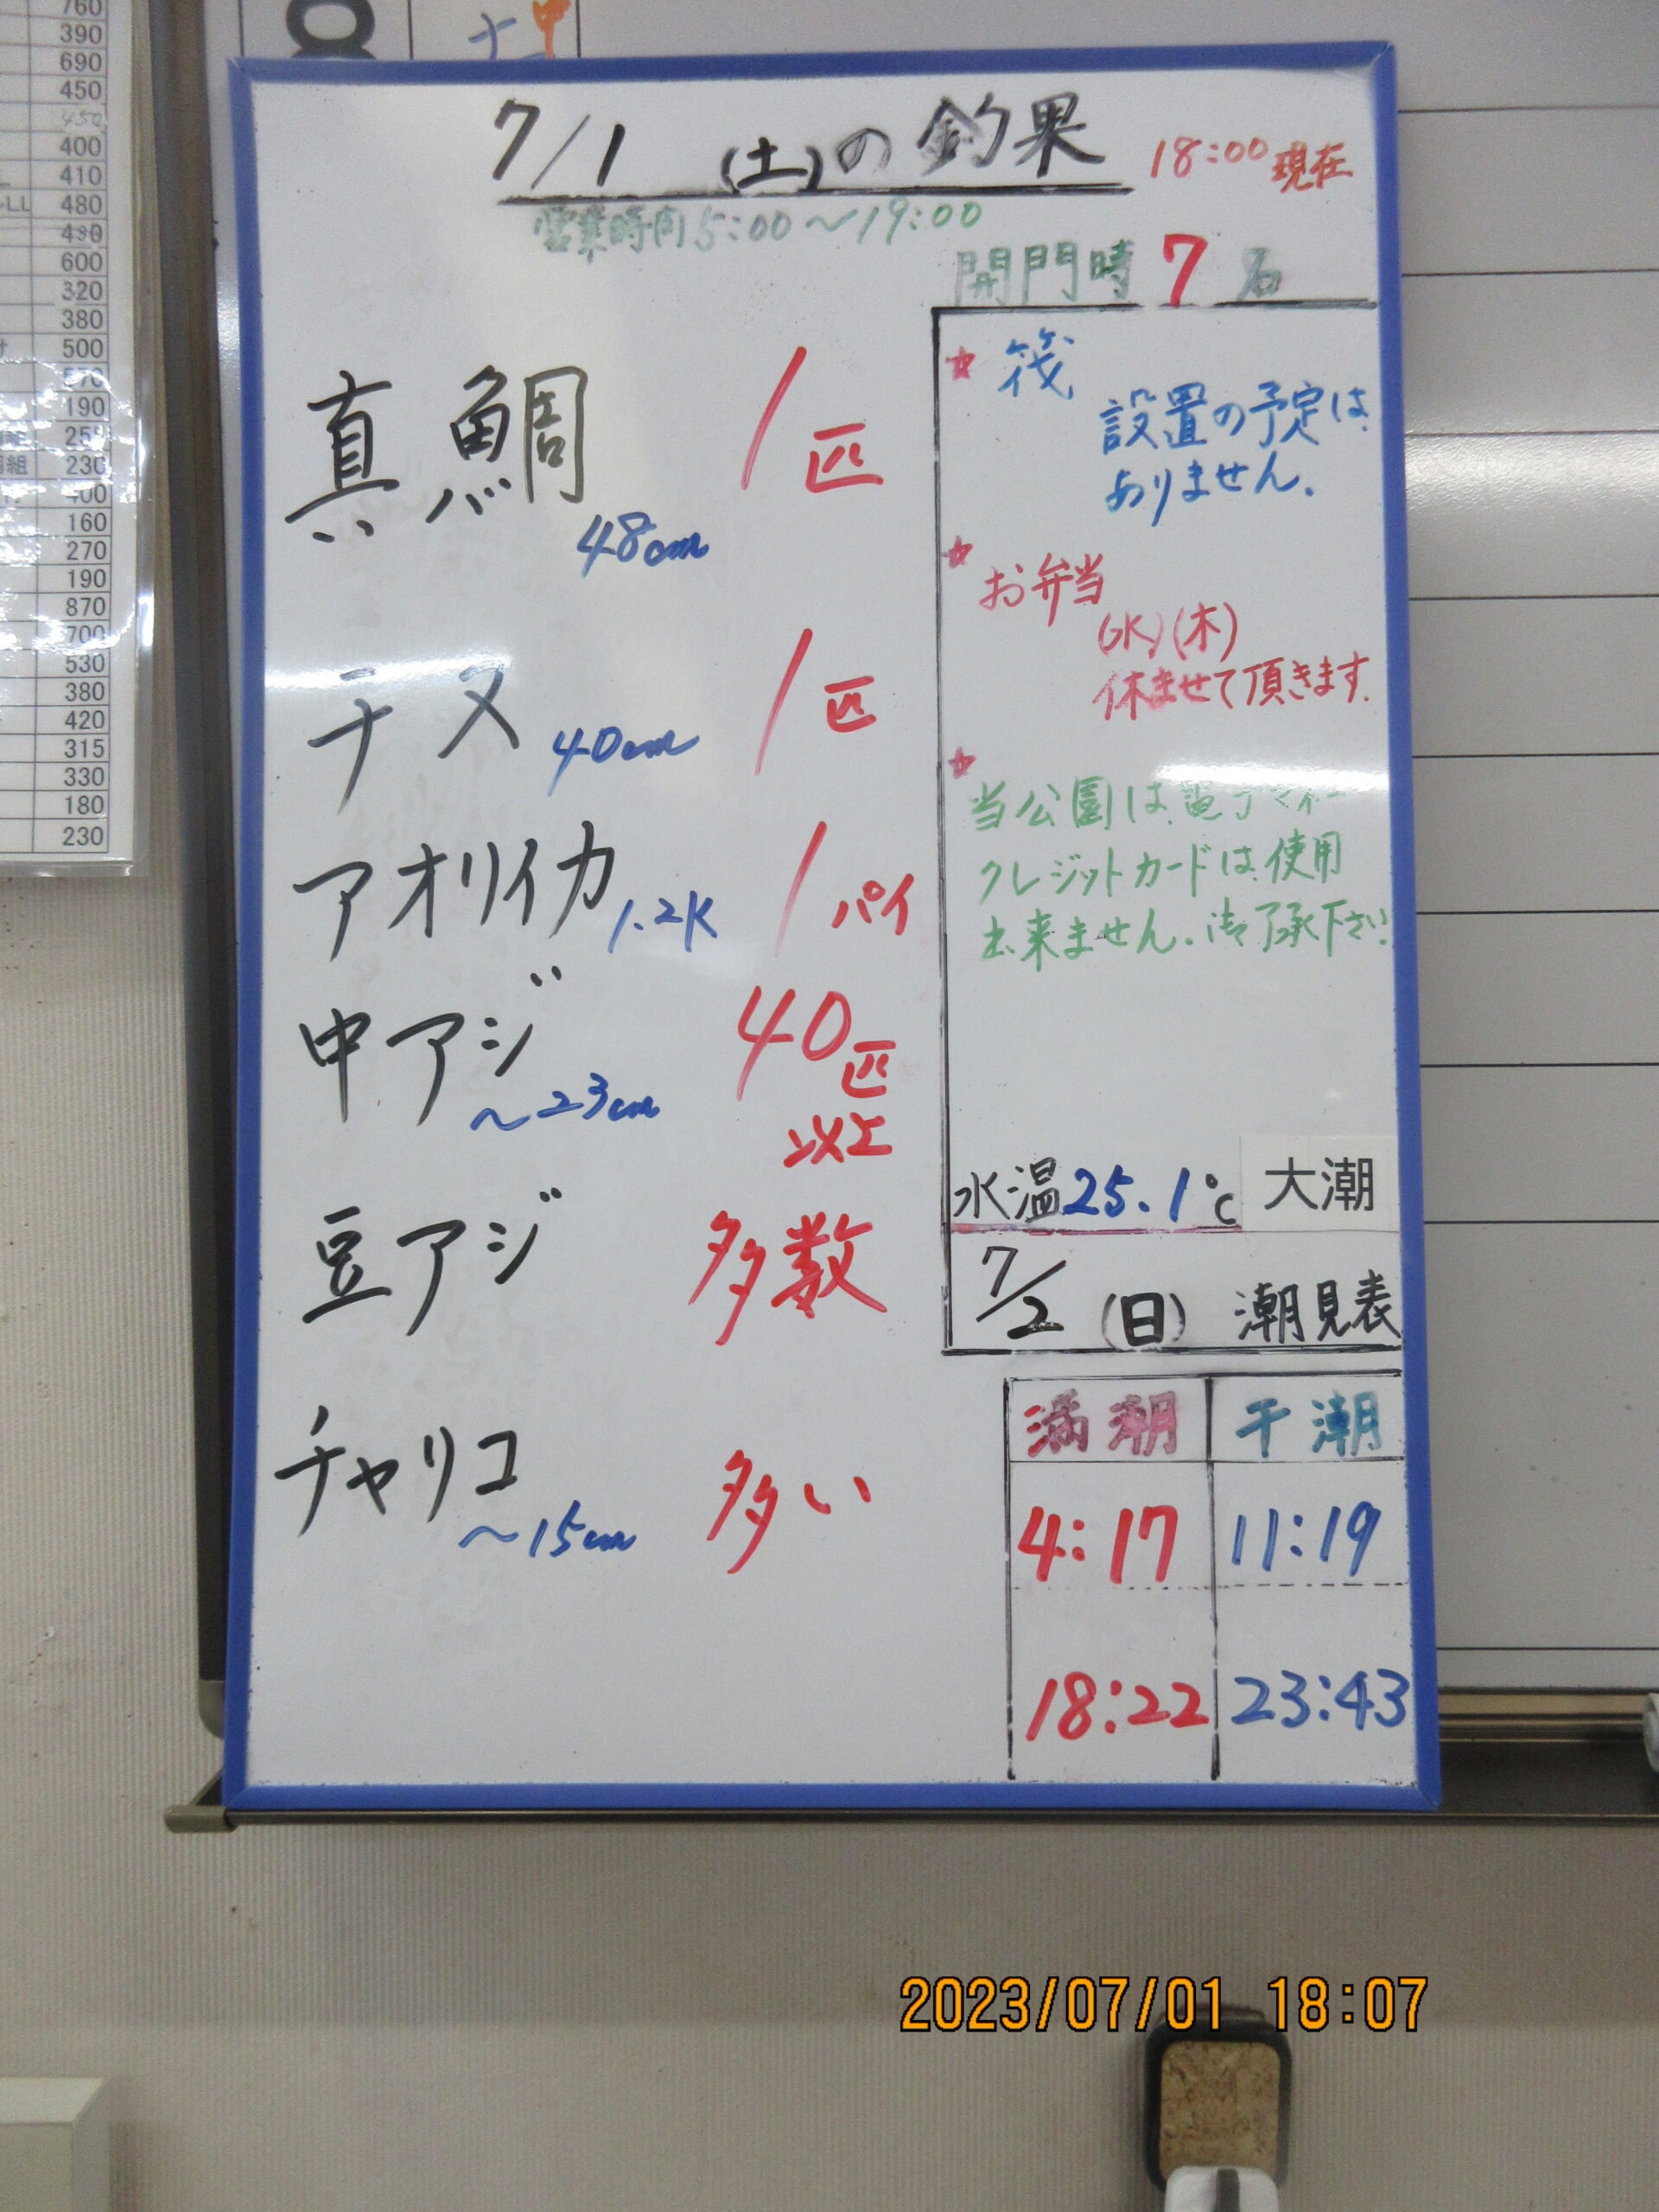 7/1 (土)の釣果 18:00現在
営業時間5:00～19:00
開門時 7 名
真鯛 48cm 1匹
チヌ 40cm 1匹
アオリイカ 1.2K 1パイ
中アジ ～23cm 40匹以上
豆アジ 多数
チャリコ ～15cm 多い
☆ 筏
設置の予定は
ありません.
☆ お弁当
(水)(木)
休ませて頂きます.
☆
当公園は、電子マネー
クレジットカードは使用
出来ません。御了承下さい
水温25.1℃ 大潮
7/2 (日) 潮見表
満潮 干潮
4:17 11:19
18:22 23:43
2023/07/01 18:07
760
390
690
450
450
400
410
LL 480
490
600
320
380
500
190
230
400
160
270
190
870
700
530
380
420
315
330
180
230